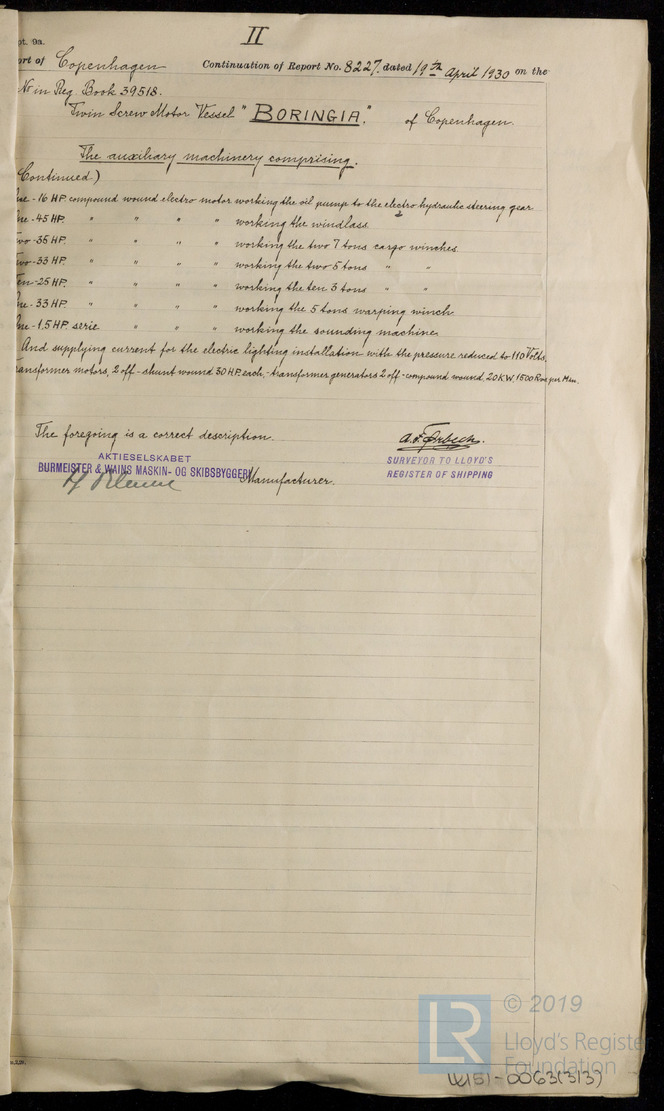 II
pt. 9a.
ort of Copenhagen Continuation of Report No. 8227. dated 19th April 1930 on the
No in Reg. Book 39518.
Twin Screw Motor Vessel "BORINGIA." of Copenhagen.
The auxiliary machinery comprising.
Continued)
ne - 16 HP. compound wound electro motor working the oil pump to the electro hydraulic steering gear
ne - 45 HP. " " " " working the windlass
wo - 35 HP. " " " " working the two 7 tons cargo winches
wo - 33 HP. " " " " working the two 5 tons " "
en - 25 HP. " " " " working the ten 3 tons " "
ne - 33 HP. " " " " working the 5 tons warping winch.
ne - 1,5 HP. serie " " " working the sounding machine.
And supplying current for the electric lighting installation with the pressure reduced to 110 Volts,
ransformer motors, 2 off - shunt wound 30 HP. each, - transformer generators 2 off - compound wound, 20 KW, 1500 Rev per Min.
The foregoing is a correct description.
AKTIESELSKABET
BURMEISTER & WAINS MASKIN- OG SKIBSBYGGERI
Manufacturer.
SURVEYOR TO LLOYD'S
REGISTER OF SHIPPING
© 2019
LR
Lloyd's Register
Foundation
W151-0063(3/3)